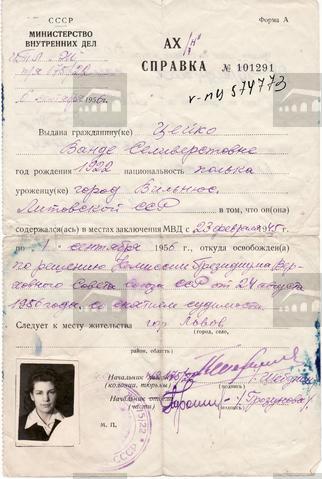 СССР
МИНИСТЕРСТВО
ВНУТРЕННИХ ДЕЛ
Форма А
АХ
СПРАВКА № 101291
574773
сентября 1956 г.
Выдана гражданину(ке) Цейко
Ванде Селиверстовне
год рождения 1922 национальность полька
уроженцу(ке) город Вильнюс,
Литовской ССР в том, что он(она)
содержался(ась) в местах заключения МВД с 23 февраля 1945 г.
по 1 сентября 1956 г., откуда освобожден(а)
по решению Комиссии Президиума Вер-
ховного Совета Союза ССР от 24 августа
1956 года, со снятием судимости.
Следует к месту жительства гор. Львов
(город, село,
район, область)
Начальник
(колонии, тюрьмы)
(подпись)
Начальник
(части)
/Грозунова/
(подпись)
М. П.
СССР